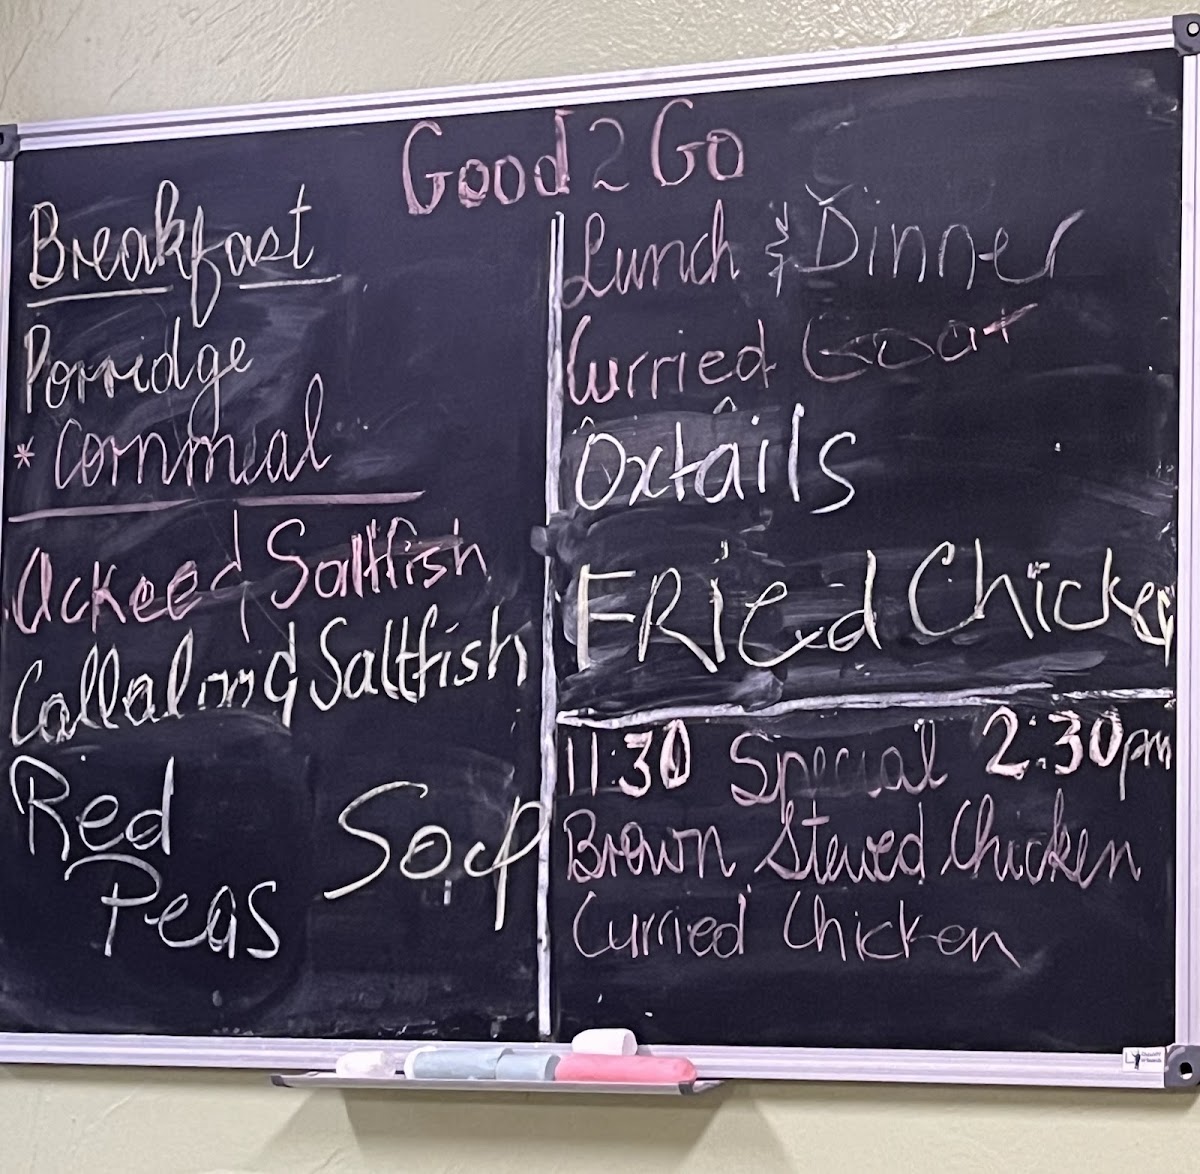 Good 2 Go
Breakfast
Porridge
* Cornmeal
Ackee & Saltfish
Callaloo & Saltfish
Red
Peas Soup
Lunch & Dinner
Curried Goat
Oxtails
FRied Chicken
11:30 Special 2:30pm
Brown Stewed Chicken
Curried Chicken